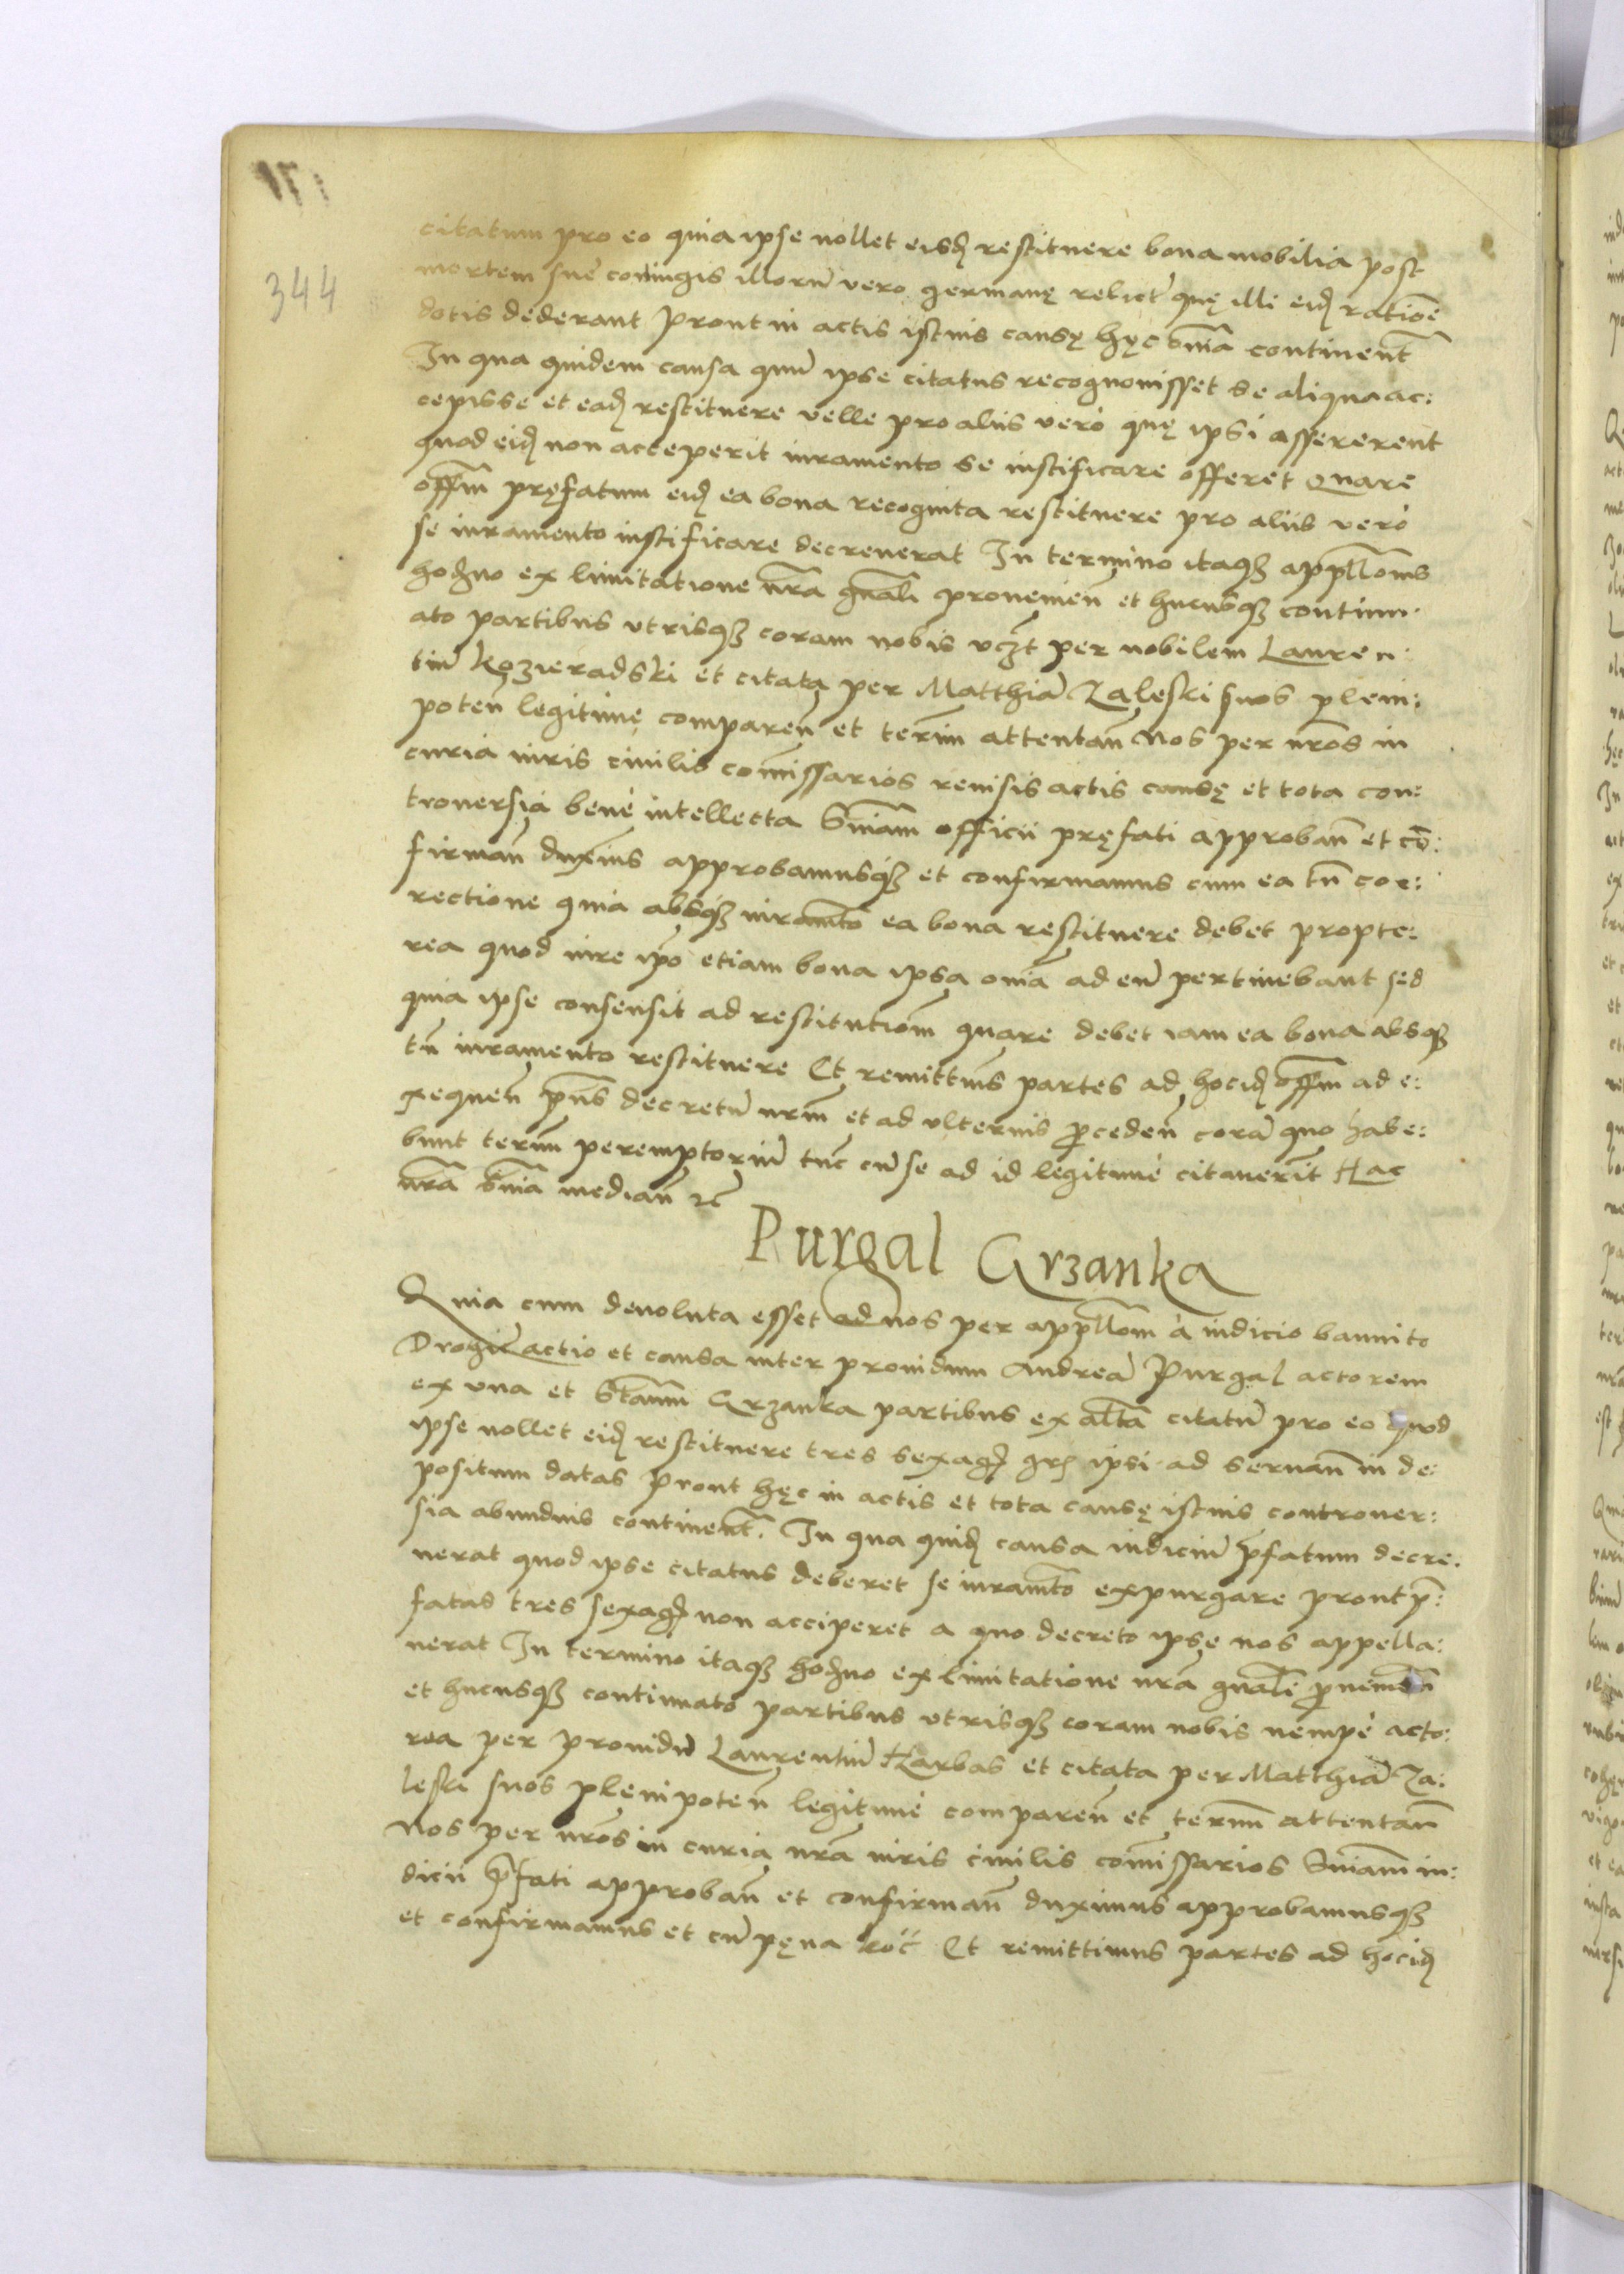 344
citatum pro eo quia ipse nollet eisd restituere bona mobilia post
mortem suę coniugis illorũ vero germanę relict quę illi eid ratiõe
dotis dederant prout in actis istius causę hęc om̃ia continent̃
In qua quidem causa quum ipse citatus recognouisset se aliqua ac:
cepisse et ead restituere velle pro aliis vero quę ipsi assererent
quod eid non acceperit iuramento se iustificare offeret quare
off̃m pręfatum eid ea bona recognita restituere pro aliis vero
se iuramento iustificare decreuerat In termino itaq appl̃lonis
hodno ex limitatione nr̃a gñali prouenieñ et hucusq continu:
ato partibus utrisq coram nobis vczt per nobilem Lauren:
tiũ Kozieradski et citata per Matthiã Zaleski suos pleni:
poteñ legitime compareñ et terim̃ attentañ Nos per nr̃os in
curia iuris ciuilis com̃issarios reuisis actis causę et tota con:
trouersia bene intellecta Sniam̃ officii pręfati approbañ et cõ:
firmañ duxim̃s approbamusq et confirmamus cum ea tñ cor:
rectione quia absq iuram̃to ea bona restituere debet propte:
rea quod iure ip̃o etiam bona ipsa om̃ia ad eũ pertinebant sed
quia ipse consensit ad restitutiõm quare debet iam ea bona absq
tñ iuramento restituere Et remittim̃s partes ad hocid off̃m ad e:
xequeñ pñs decretũ nr̃m et ad vlterius p̃cedeñ corã quo habe:
bunt terim̃ peremptoriũ tũc cũ se ad id legitime citauerit Hac
nr̃a sñia mediañ rc̃
Purgal Grzanka
Quia cum deuoluta esset ad nos per appl̃lom a iudicio bannito
Drogic̃ actio et causa inter prouidum Andreã Purgal actorem
ex una et Stañm Grzanka partibus ex alt̃a citatũ pro eo quod
ipse nollet eid restituere tres sexag gr̃ ipsi ad seruañ in de:
positum datas prout hęc in actis et tota causę istius controuer:
sia abundius continent̃. In qua quid causa iudiciũ p̃fatum decre:
uerat quod ipse citatus deberet se iuram̃to expurgare prout p̃:
fatas tres sexag non acciperet a quo decreto ipse nos appella:
uerat In termino itaq hodno ex limitatione nr̃a gñali p̃uenieñ
et hucusq continuato partibus utrisq coram nobis nempe acto:
rea per prouidũ Laurentiũ Karbas et citata per Matthiã Za:
leski suos plenipoteñ legitime compareñ et termĩ attentañ
Nos per nr̃os in curia nr̃a iuris ciuilis com̃issarios Sniam̃ iu:
dicii p̃fati approbañ et confirmañ duximus approbamusq
et confirmamus et cũ pęna koć Et remittimus partes ad hocid